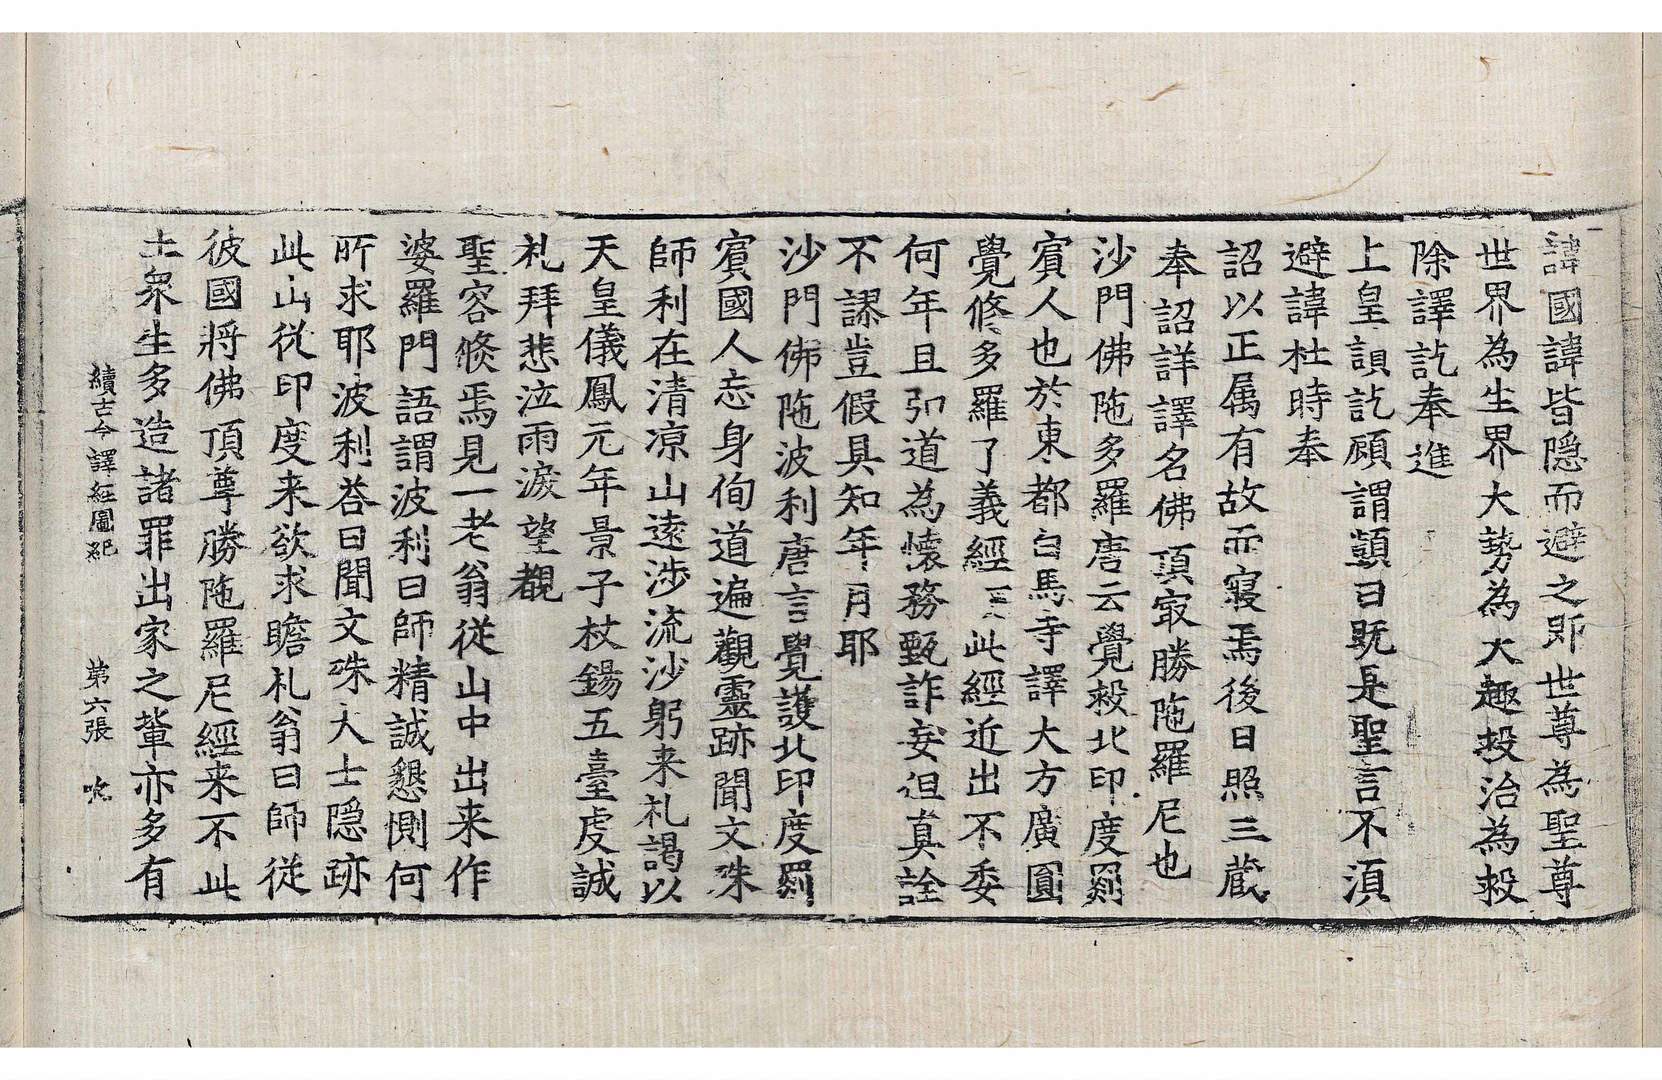 諱國諱皆隠而避之即世尊為聖尊
世界為生界大勢為大趣救治為救
除譯訖奉進
上皇讀訖顧謂顗曰既是聖言不湏
避諱杜時奉
詔以正属有故而寢焉後日照三蔵
奉詔詳譯名佛頂㝡勝陁羅尼也
沙門佛陁多羅唐云覺救北印度罽
賔人也於東都白馬寺譯大方廣圓
覺修多羅了義經一部此經近出不委
何年且弘道為懐務甄詐妄但真詮
不謬豈假具知年月耶
沙門佛陁波利唐言覺護北印度罽
賔國人忘身徇道遍觀靈跡聞文殊
師利在清凉山遠渉流沙躬来礼謁以
天皇儀鳳元年景子杖錫五臺虔誠
礼拜悲泣雨淚望覩
聖容倐焉見一老翁従山中出来作
婆羅門語謂波利曰師精誠懇惻何
所求耶波利荅曰聞文殊大士隠跡
此山従印度来欲求瞻礼翁曰師従
彼國將佛頂尊勝陁羅尼經来不此
土衆生多造諸罪出家之輩亦多有
續古今譯経圖紀 第六張